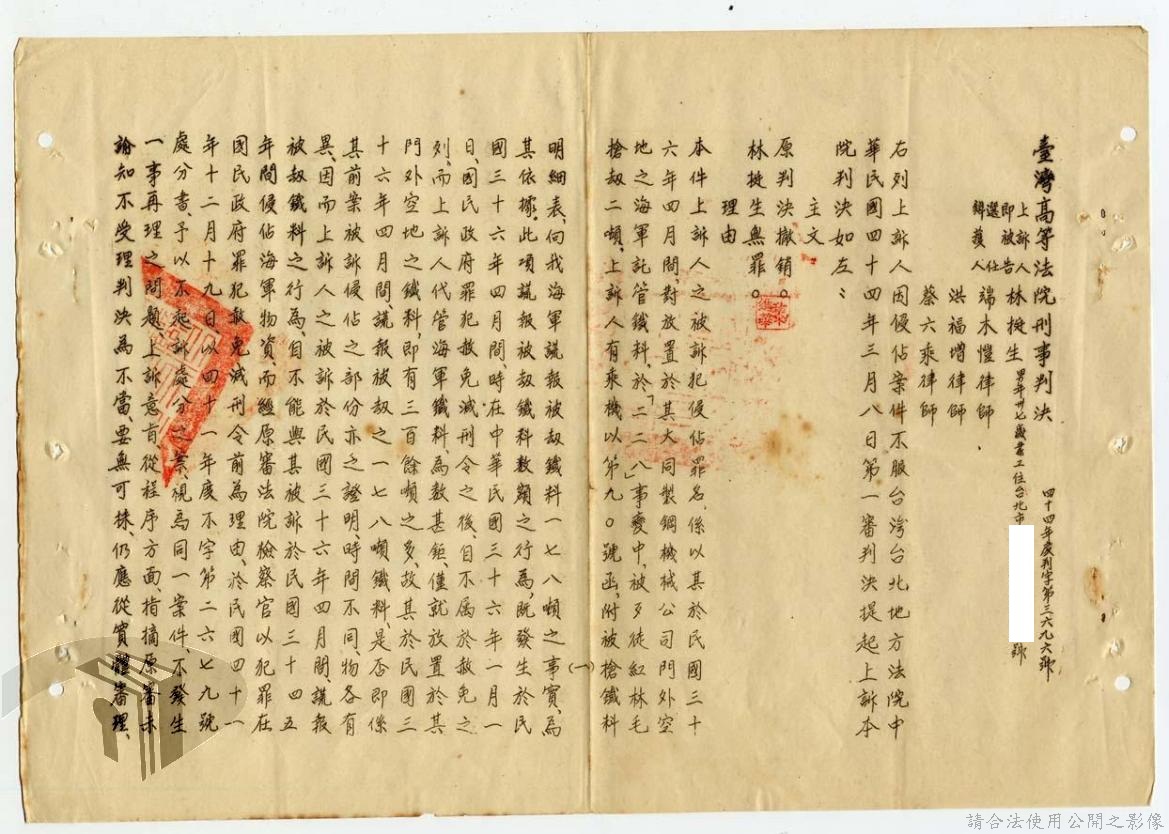 臺灣高等法院刑事判決
四十四年度判字第三六九六號
上訴人
即被告 林挺生 男年卅七歲業工住台北市 號
選任
辯護人 端木愷律師
洪福增律師
蔡六乘律師
右列上訴人因侵佔案件不服台灣台北地方法院中
華民國四十四年三月八日第一審判決提起上訴本
院判決如左：
主文
原判決撤銷。
林挺生無罪。
理由
本件上訴人之被訴犯侵佔罪名，係以其於民國三十
六年四月間，對放置於其大同製鋼機械公司門外空
地之海軍託管鐵料，於「二二八」事變中，被歹徒紅林毛
搶劫二噸，上訴人有乘機以第九〇號函，附被搶鐵料
(一)
明細表，向我海軍謊報被劫鐵料一七八噸之事實，為
其依據，此項謊報被劫鐵料數額之行為，既發生於民
國三十六年四月間，時在中華民國三十六年一月一
日，國民政府罪犯赦免減刑令之後，自不屬於赦免之
列，而上訴人代管海軍鐵料，為數甚鉅，僅就放置於其
門外空地之鐵料，即有三百餘噸之多，故其於民國三
十六年四月間，謊報被劫之一七八噸鐵料，是否即係
其前案被訴侵佔之部份，亦乏證明，時間不同，物各有
異，因而上訴人之被訴於民國三十六年四月間，謊報
被劫鐵料之行為，自不能與其被訴於民國三十四五
年間侵佔海軍物資，而經原審法院檢察官以犯罪在
國民政府罪犯赦免減刑令前為理由，於民國四十一
年十二月十九日以四十一年度不字第二六七九號
處分書，予以不起訴處分之案，視為同一案件，不發生
一事再理之問題，上訴意旨從程序方面，指摘原審未
諭知不受理判決，為不當，要無可採，仍應從實體審理，
請合法使用公開之影像